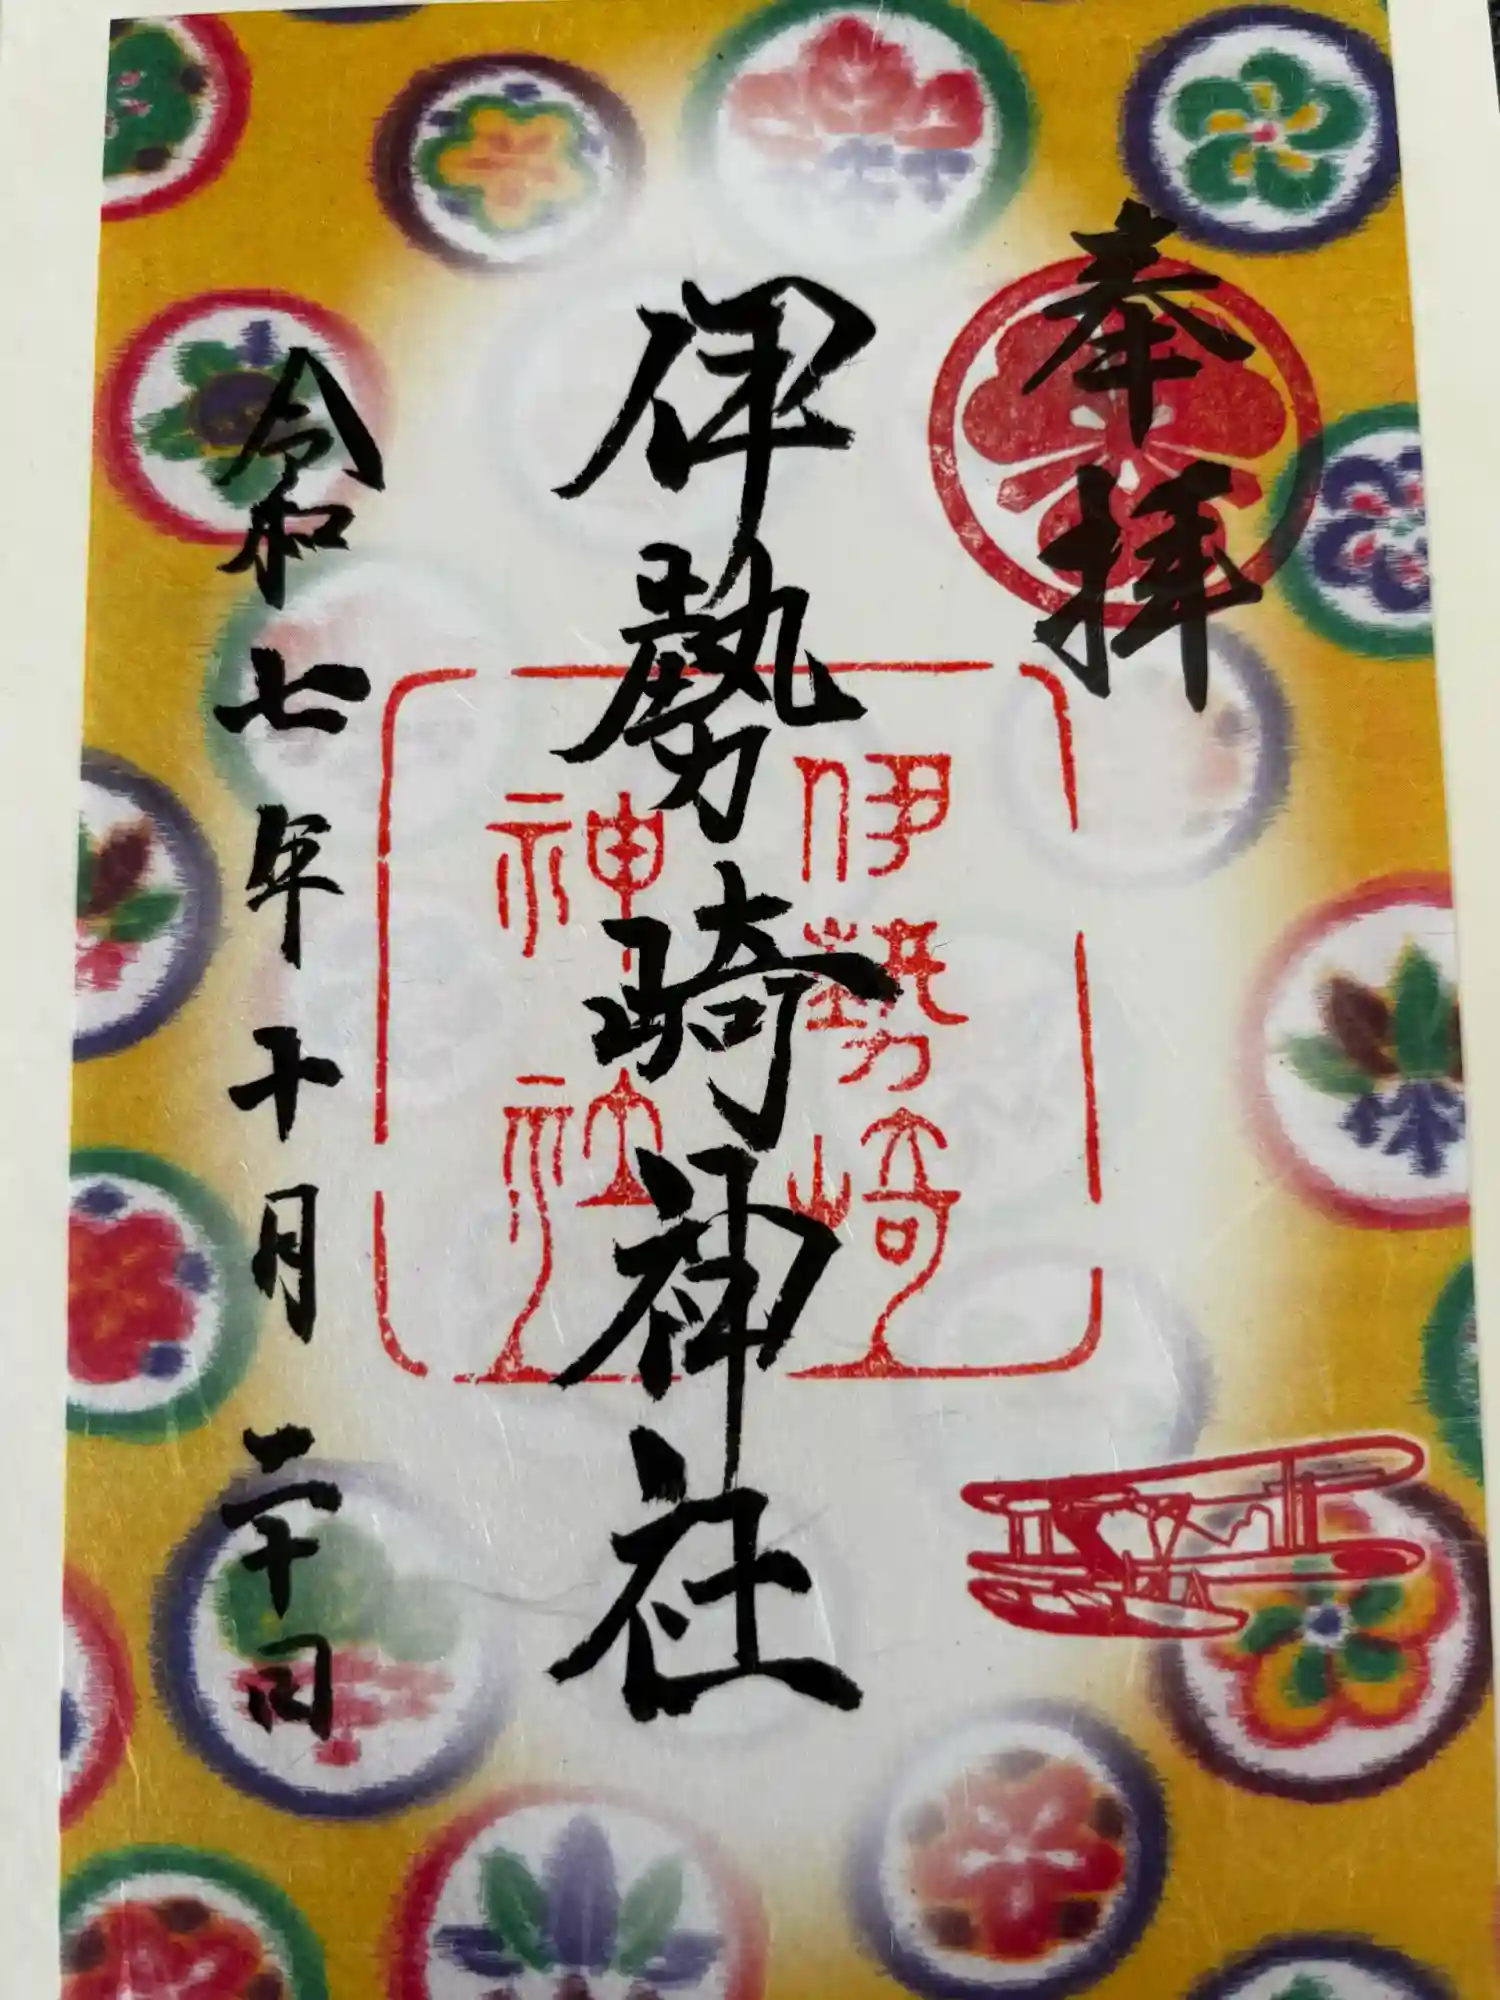 奉拝
伊勢崎神社
伊勢崎
神社
令和七年十月二十日